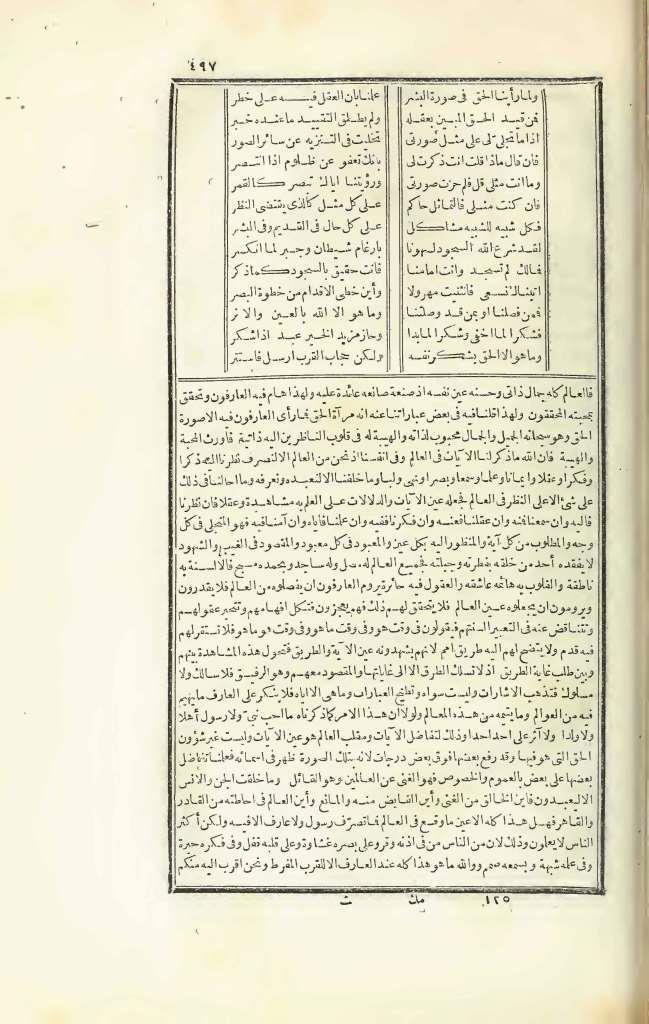 ٤٩٧
ولما رأينا الحق في صورة البشر علمنا بان العقل فيه على خطر
فمن قيد الحق المبين بعقله ولم يطلق التقييد ما عنده خبر
اذا ما تجلى لي على مثل صورتي تجليت في التنزيه عن سائر الصور
فان قال ماذا قلت انت ذكرت لي بانك تعفو عن ظلوم اذا انتصر
وما انت مثلي قل فلم حزت صورتي ورؤيتنا اياك تبصر كالقمر
فان كنت مثلي فالتماثل حاكم على كل مثل كالذي يقتضي النظر
فكل شبيه للشبيه مشاكل على كل حال في القديم وفي البشر
لقد شرع الله السجود لسهونا بارغام شيطان وجبر لما انكسر
فمالك لم تسجد وانت امامنا فانت حقيق بالسجود كما ذكر
اتيناك نسعى فانثنيت مهرولا وأين خطى الاقدام من خطوة البصر
فمن فصلنا او بمن قد وصلتنا وما هو الا الله بالعين والاثر
فشكرا لما اخفى وشكرا لما بدا وحاز مزيد الخير عبد اذا شكر
وما هو الا الحق يشكر نفسه ولكن حجاب القرب ارسل فاستتر
فالعالم كله جمال ذاتي وحسنه عين نفسه اذ صنعة صانعه عائدة عليه ولهذا هام فيه العارفون وتحقق
بمحبته المحققون ولهذا قلنا فيه في بعض عباراتنا عنه انه مرآة الحق فما رأى العارفون فيه الا صورة
الحق وهو سبحانه الجميل والجمال محبوب لذاته والهيبة له في قلوب الناظرين اليه ذاتية فأورث المحبة
والهيبة فان الله ما ذكر لنا الآيات في العالم وفي انفسنا اذ نحن من العالم الا لنصرف نظرنا اليه ذكرا
وفكرا وعقلا وايمانا وعلما وسمعا وبصرا ونهى ولبا وما خلقنا الا لنعبده ونعرفه وما احالنا في ذلك
على شئ الا على النظر في العالم فجعله عين الآيات والدلالات على العلم به مشاهدة وعقلا فان نظرنا
فاليه وان سمعنا فمنه وان عقلنا فعنه وان فكرنا ففيه وان علمنا فاياه وان آمنا فبه فهو المتجلي في كل
وجه والمطلوب من كل آية والمنظور اليه بكل عين والمعبود في كل معبود والمقصود في الغيب والشهود
لا يفقده أحد من خلقه بفطرته وجبلته فجميع العالم له مصل وله ساجد وبحمده مسبح فالالسنة به
ناطقة والقلوب به هائمة عاشقة والعقول فيه حائرة يروم العارفون ان يفصلوه من العالم فلا يقدرون
ويرومون ان يجعلوه عين العالم فلا يتحقق لهم ذلك فهم يعجزون فتكل افهامهم وتتحير عقولهم
وتتناقض عنه في التعبير السنتهم فيقولون في وقت هو وفي وقت ما هو وفي وقت هو ما هو فلا تستقر لهم
فيه قدم ولا يتضح لهم اليه طريق امم لانهم يشهدونه عين الآية والطريق فتحول هذه المشاهدة بينهم
وبين طلب غاية الطريق اذ لا تسلك الطرق الا الى غاياتها والمقصود معهم وهو الرفيق فلا سالك ولا
مسلوك فتذهب الاشارات وليست سواه وتطيح العبارات وما هي الا اياه فلا ينكر على العارف ما يهيم
فيه من العوالم وما يتيمه من هذه المعالم ولولا ان هذا الامر كما ذكرناه ما احب نبيّ ولا رسول أهلا
ولا ولدا ولا آثر على احد احدا وذلك لتفاضل الآيات وتقلب العالم هو عين الآيات وليست غير شؤون
الحق التي هو فيها وقد رفع بعضها فوق بعض درجات لانه بتلك الصورة ظهر في اسمائه فعلمنا تفاضل
بعضها على بعض بالعموم والخصوص فهو الغني عن العالمين وهو القائل وما خلقت الجن والانس
الا ليعبدون فاين الخالق من الغني وأين القابض منه والمانع وأين العالم في احاطته من القادر
والقاهر فهل هذا كله الا عين ما وقع في العالم فما تصرّف رسول ولا عارف الا فيه ولكن أكثر
الناس لا يعلمون وذلك لان من الناس من في اذنه وقر وعلى بصره غشاوة وعلى قلبه قفل وفي فكره حيرة
وفي علمه شبهة وبسمعه صمم ووالله ما هو هذا كله عند العارف الا للقرب المفرط ونحن اقرب اليه منكم
١٢٥ مك ث